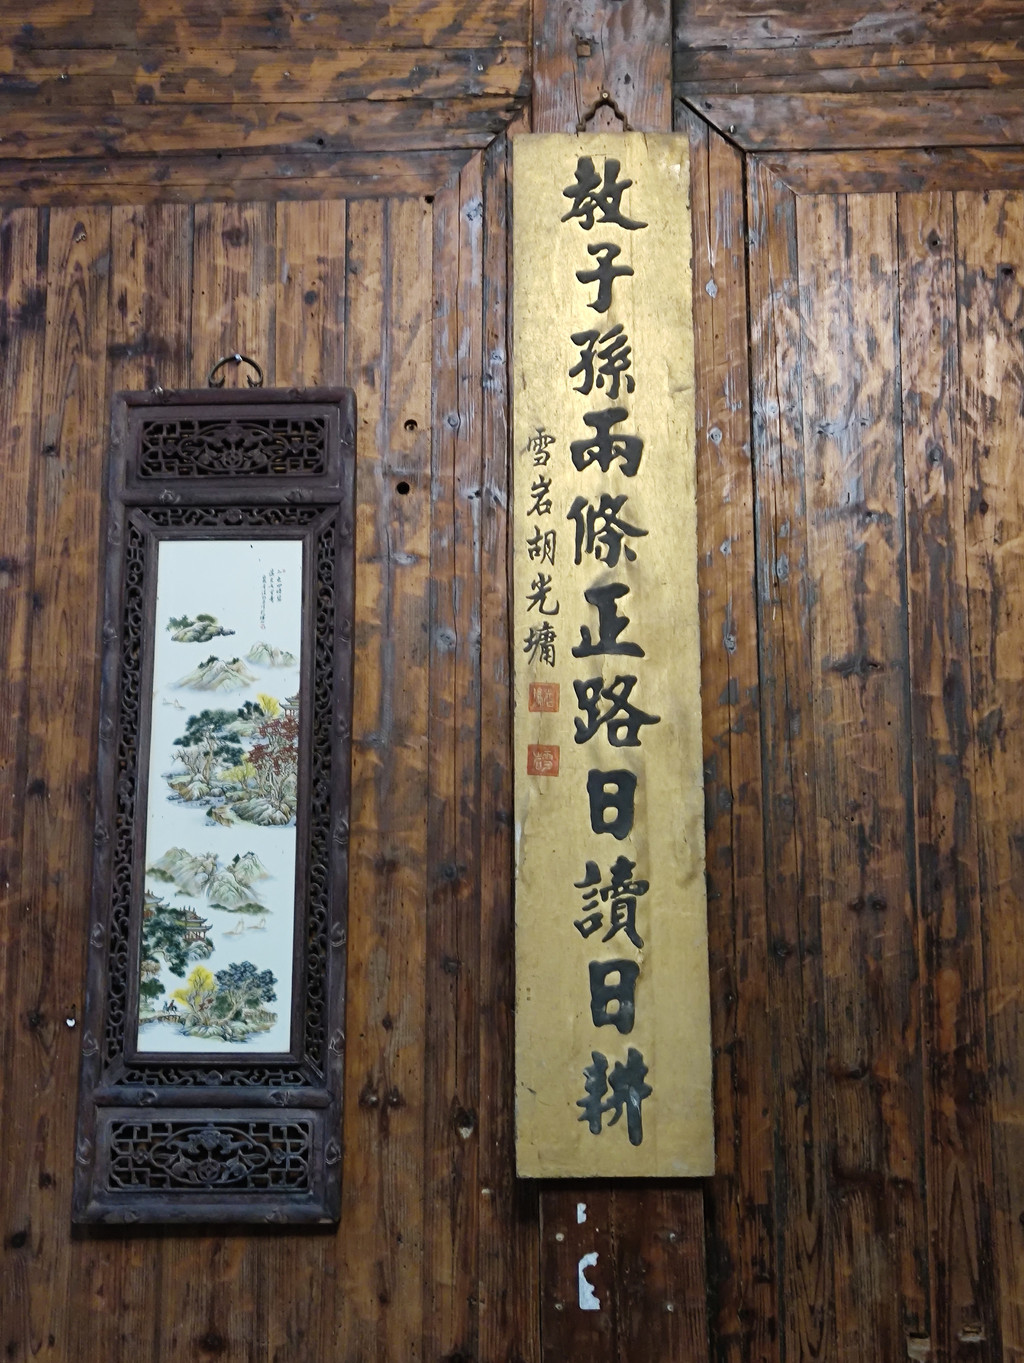 教子孫兩條正路曰讀曰耕
雪岩胡光墉